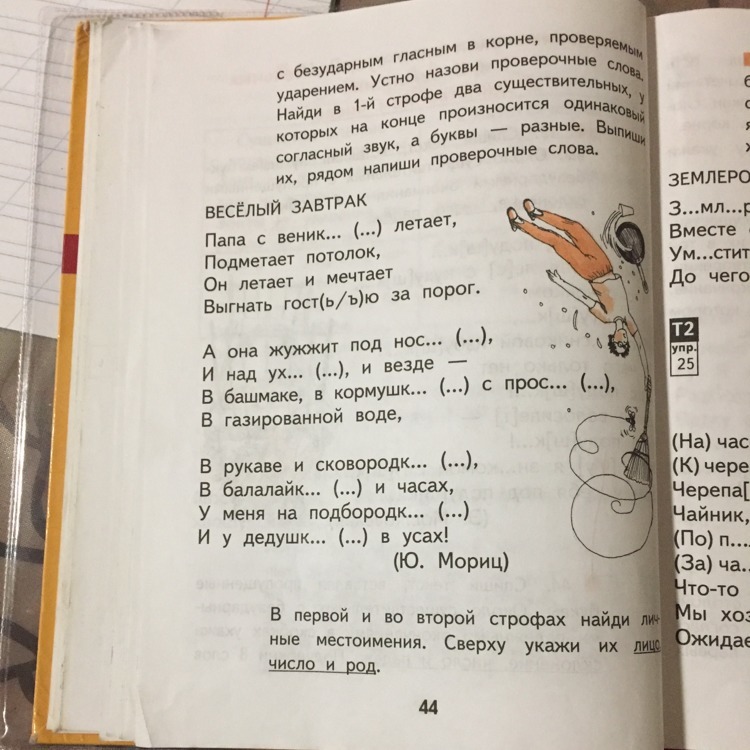 с безударным гласным в корне, проверяемым
ударением. Устно назови проверочные слова.
Найди в 1-й строфе два существительных, у
которых на конце произносится одинаковый
согласный звук, а буквы — разные. Выпиши
их, рядом напиши проверочные слова.
ВЕСЁЛЫЙ ЗАВТРАК
Папа с веник... (...) летает,
Подметает потолок,
Он летает и мечтает
Выгнать гост(ь/ъ)ю за порог.
А она жужжит под нос... (...),
И над ух... (...), и везде —
В башмаке, в кормушк... (...) с прос... (...),
В газированной воде,
В рукаве и сковородк... (...),
В балалайк... (...) и часах,
У меня на подбородк... (...)
И у дедушк... (...) в усах!
(Ю. Мориц)
В первой и во второй строфах найди лич-
ные местоимения. Сверху укажи их лицо,
число и род.
44
ЗЕМЛЕРО
З...мл...р
Вместе
Ум...стит
До чего
Т2
упр.
25
(На) час
(К) чере
Черепа[
Чайник,
(По) п...
(За) ча..
Что-то
Мы хоз
Ожидае